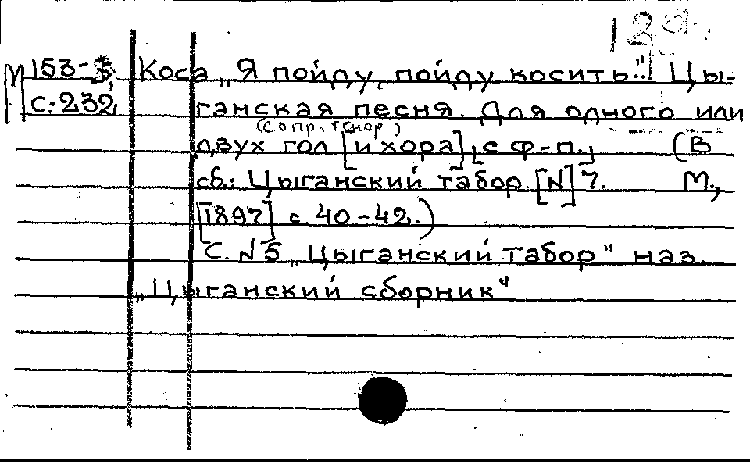 М 153-3 Коса „Я пойду, пойду косить..." Цы-
С.232 ганская песня. Для одного или
(сопр. тенор)
двух гол [и хора], [с ф-п.] (В
сб.: Цыганский табор [N] 7. М.,
[1897] с 40-42.)
С. N 5 „Цыганский табор" наз.
„Цыганский сборник"